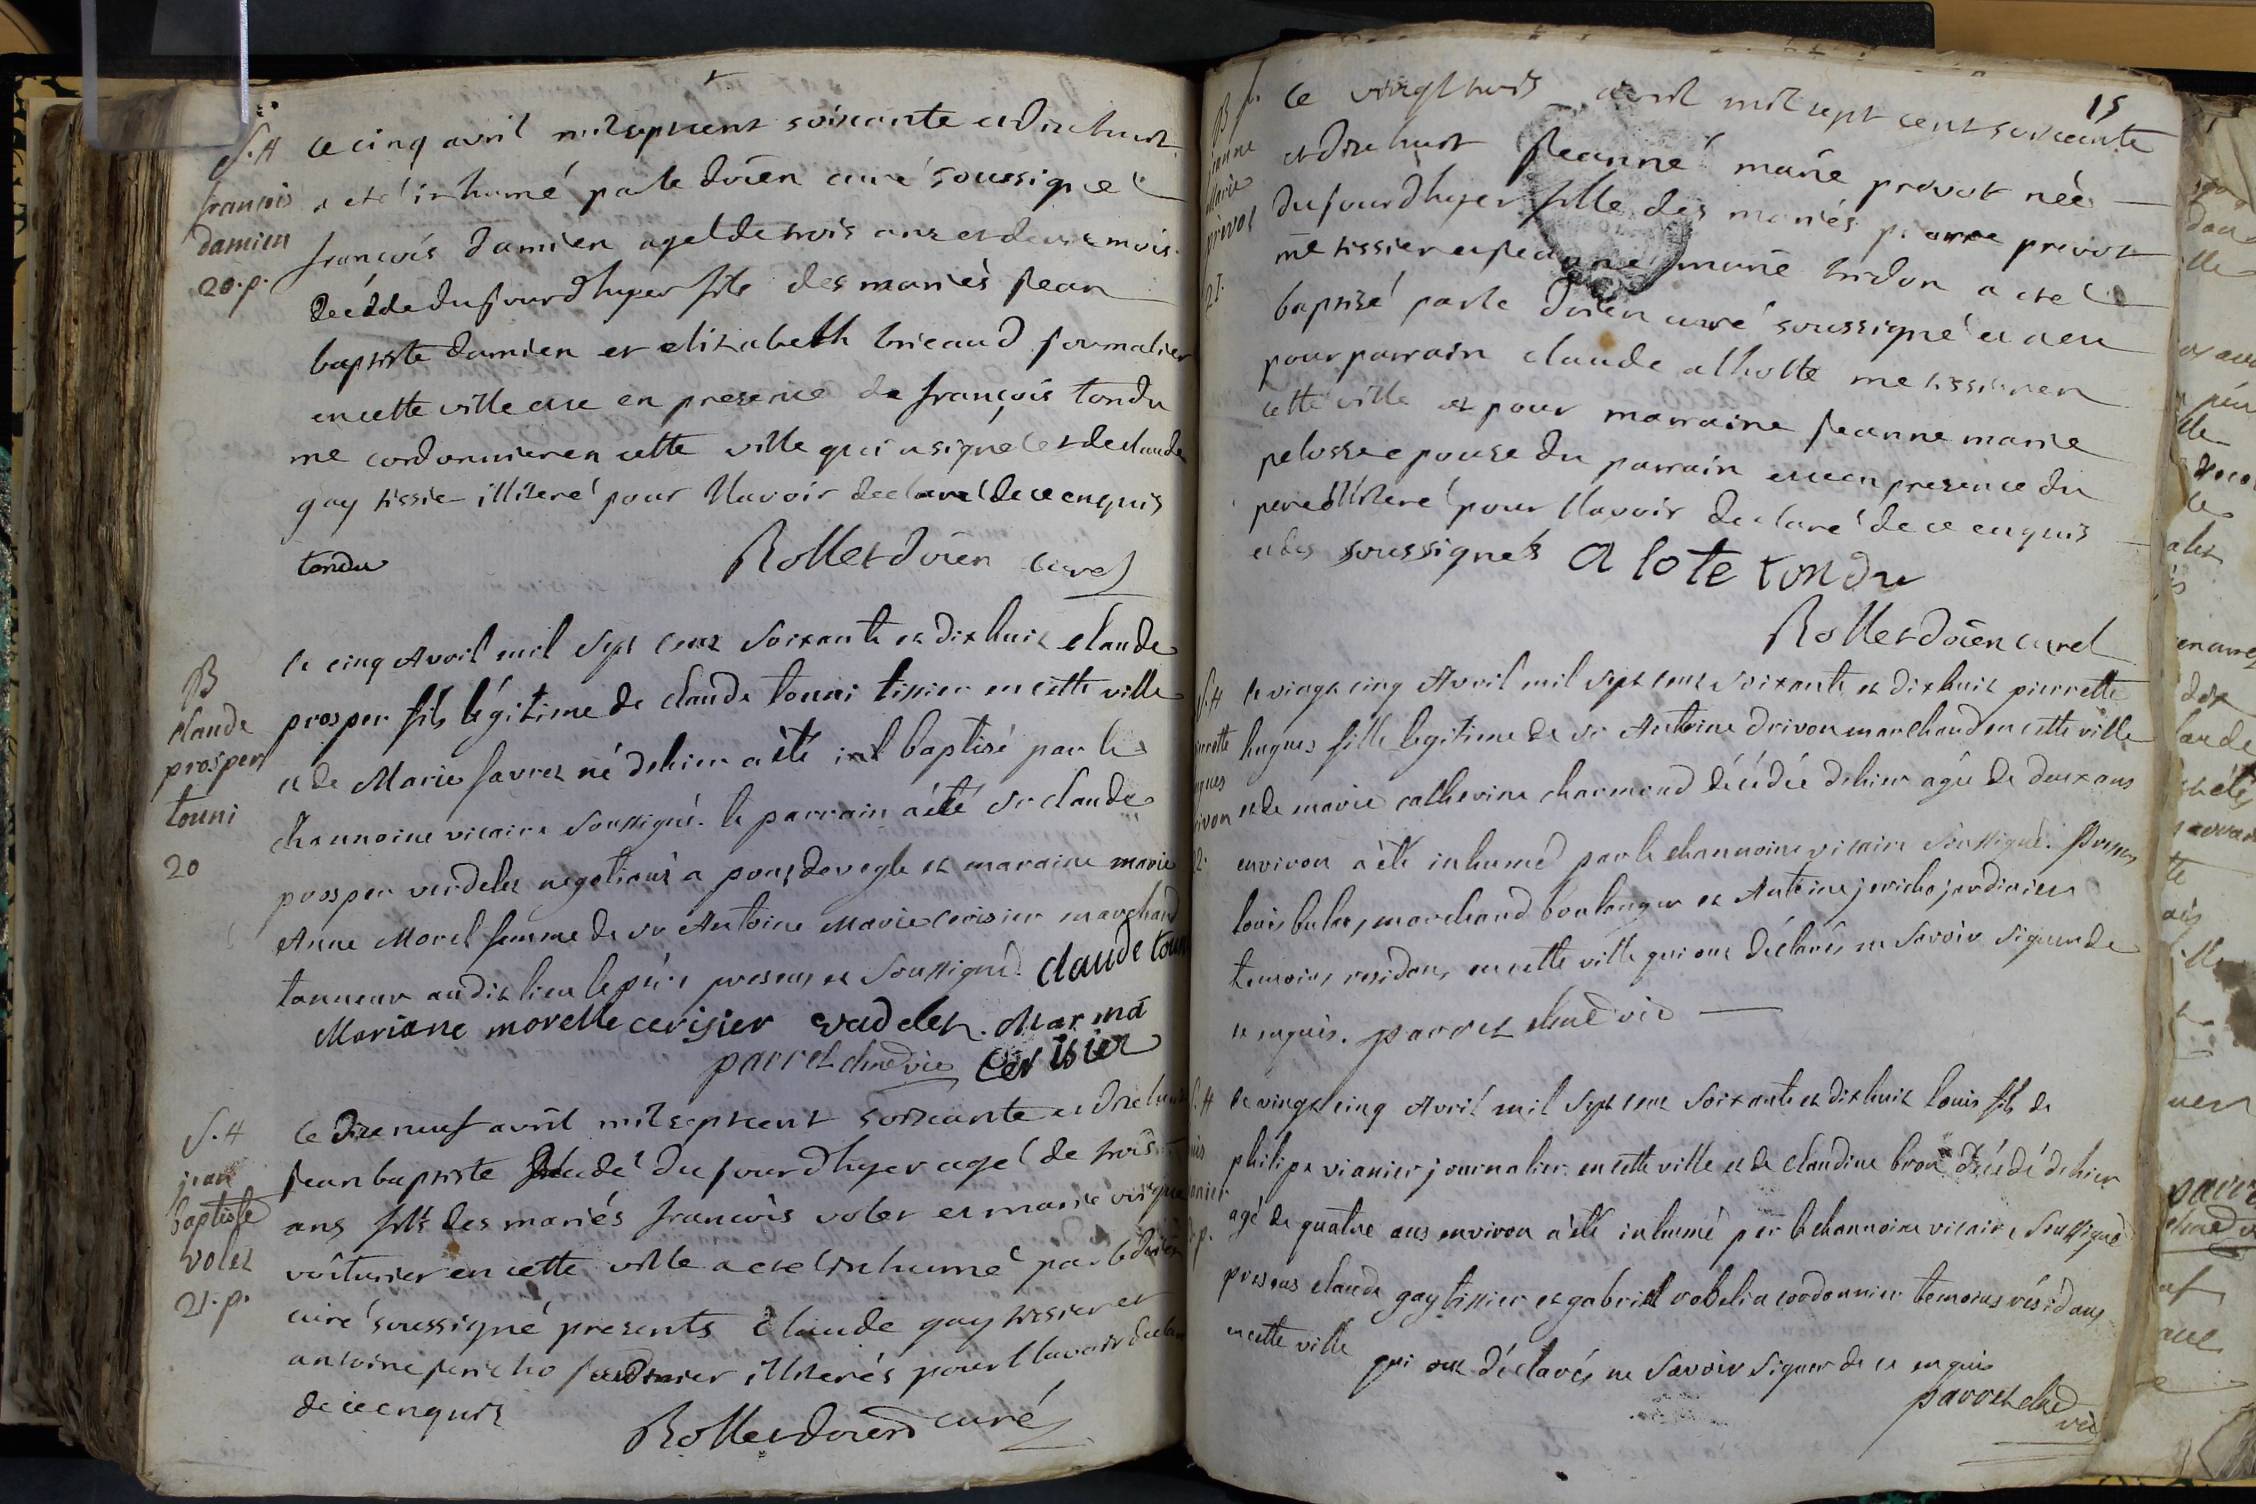 S.H
francois
damien
20.p.
ce cinq avril mil sept cent soixante et dix huit
a eté inhumé par le doïen curé soussigné
françois damien agé de trois ans et deux mois
décédé du jour d'hyer fils des mariés jean
baptiste damien et elizabeth bricaud journalier
en cette ville ce en presence de françois tondu
me cordonnier en cette ville qui a signé et de claude
gay tissie illiteré pour l'avoir declaré de ce enquis
tondu Rollet doïen curé
B
claude
prosper
touni
20
le cinq Avril mil sept cent soixante et dix huit claude
prosper fils légitime de claude touni tissier en cette ville
et de Marie favret né d'hier a été baptisé par le
channoine vicaire soussigné. le parrain a été sr claude
prosper verdelet negotiant a pont de vegle et maraine marie
Anne Morel femme de sr Antoine Marie cerisier marchand
tanneur audit lieu le père present et soussigné claude touni
Mariane morelle cerisier vadelet. Mar ma
parret chne vic cerisier
S.H
jean
baptiste
volet
21.p.
ce dix neuf avril mil sept cent soixante et dix huit
jean baptiste décédé du jour d'hyer agé de trois
ans fils des mariés francois volet et marie
voiturier en cette ville a eté inhumé par le doïen
curé soussigné presents claude gay tissier et
antoine jericho jardinier illiterés pour l'avoir declaré
de ce enquis
Rollet doïen curé
15
B
jeanne
Marie
privot
21.
ce vingt trois avril mil sept cent soixante
et dix huit jeanne marie prevot née
du jour d'hyer fille des mariés pierre prevot
me tissier et jeanne marie tridon a eté
baptisé par le doïen curé soussigné et a eu
pour parrain claude alhotte me tissier en
cette ville et pour marraine jeanne marie
pelosse epouse du parrain ce en presence du
pere illiteré pour l'avoir declaré de ce enquis
et des soussignés a lote tondu
Rollet doïen curé
S.H
pierrette
hugues
drivon
22.
le vingt cinq Avril mil sept cent soixante et dix huit pierrette
hugues fille legitime de sr Antoine drivon marchand en cette ville
et de marie catherine charmond décédée d'hier agée de deux ans
environ a été inhumé par le channoine vicaire soussigné. presens
louis bulet, marchand boulanger et Antoine jericho jardinier
temoins residans en cette ville qui ont déclarés ne savoir signer de
ce enquis. parret chne vic
S.H
louis
vianier
p.
le vingt cinq Avril mil sept cent soixante et dix huit louis fils de
philipe vianier journalier en cette ville et de claudine bron décédé d'hier
agé de quatre ans environ a été inhumé par le channoine vicaire soussigné
presens claude gay tissier et gabriel robelin cordonnier temoins résidans
en cette ville qui ont déclarés ne savoir signer de ce enquis
parret chne
vic